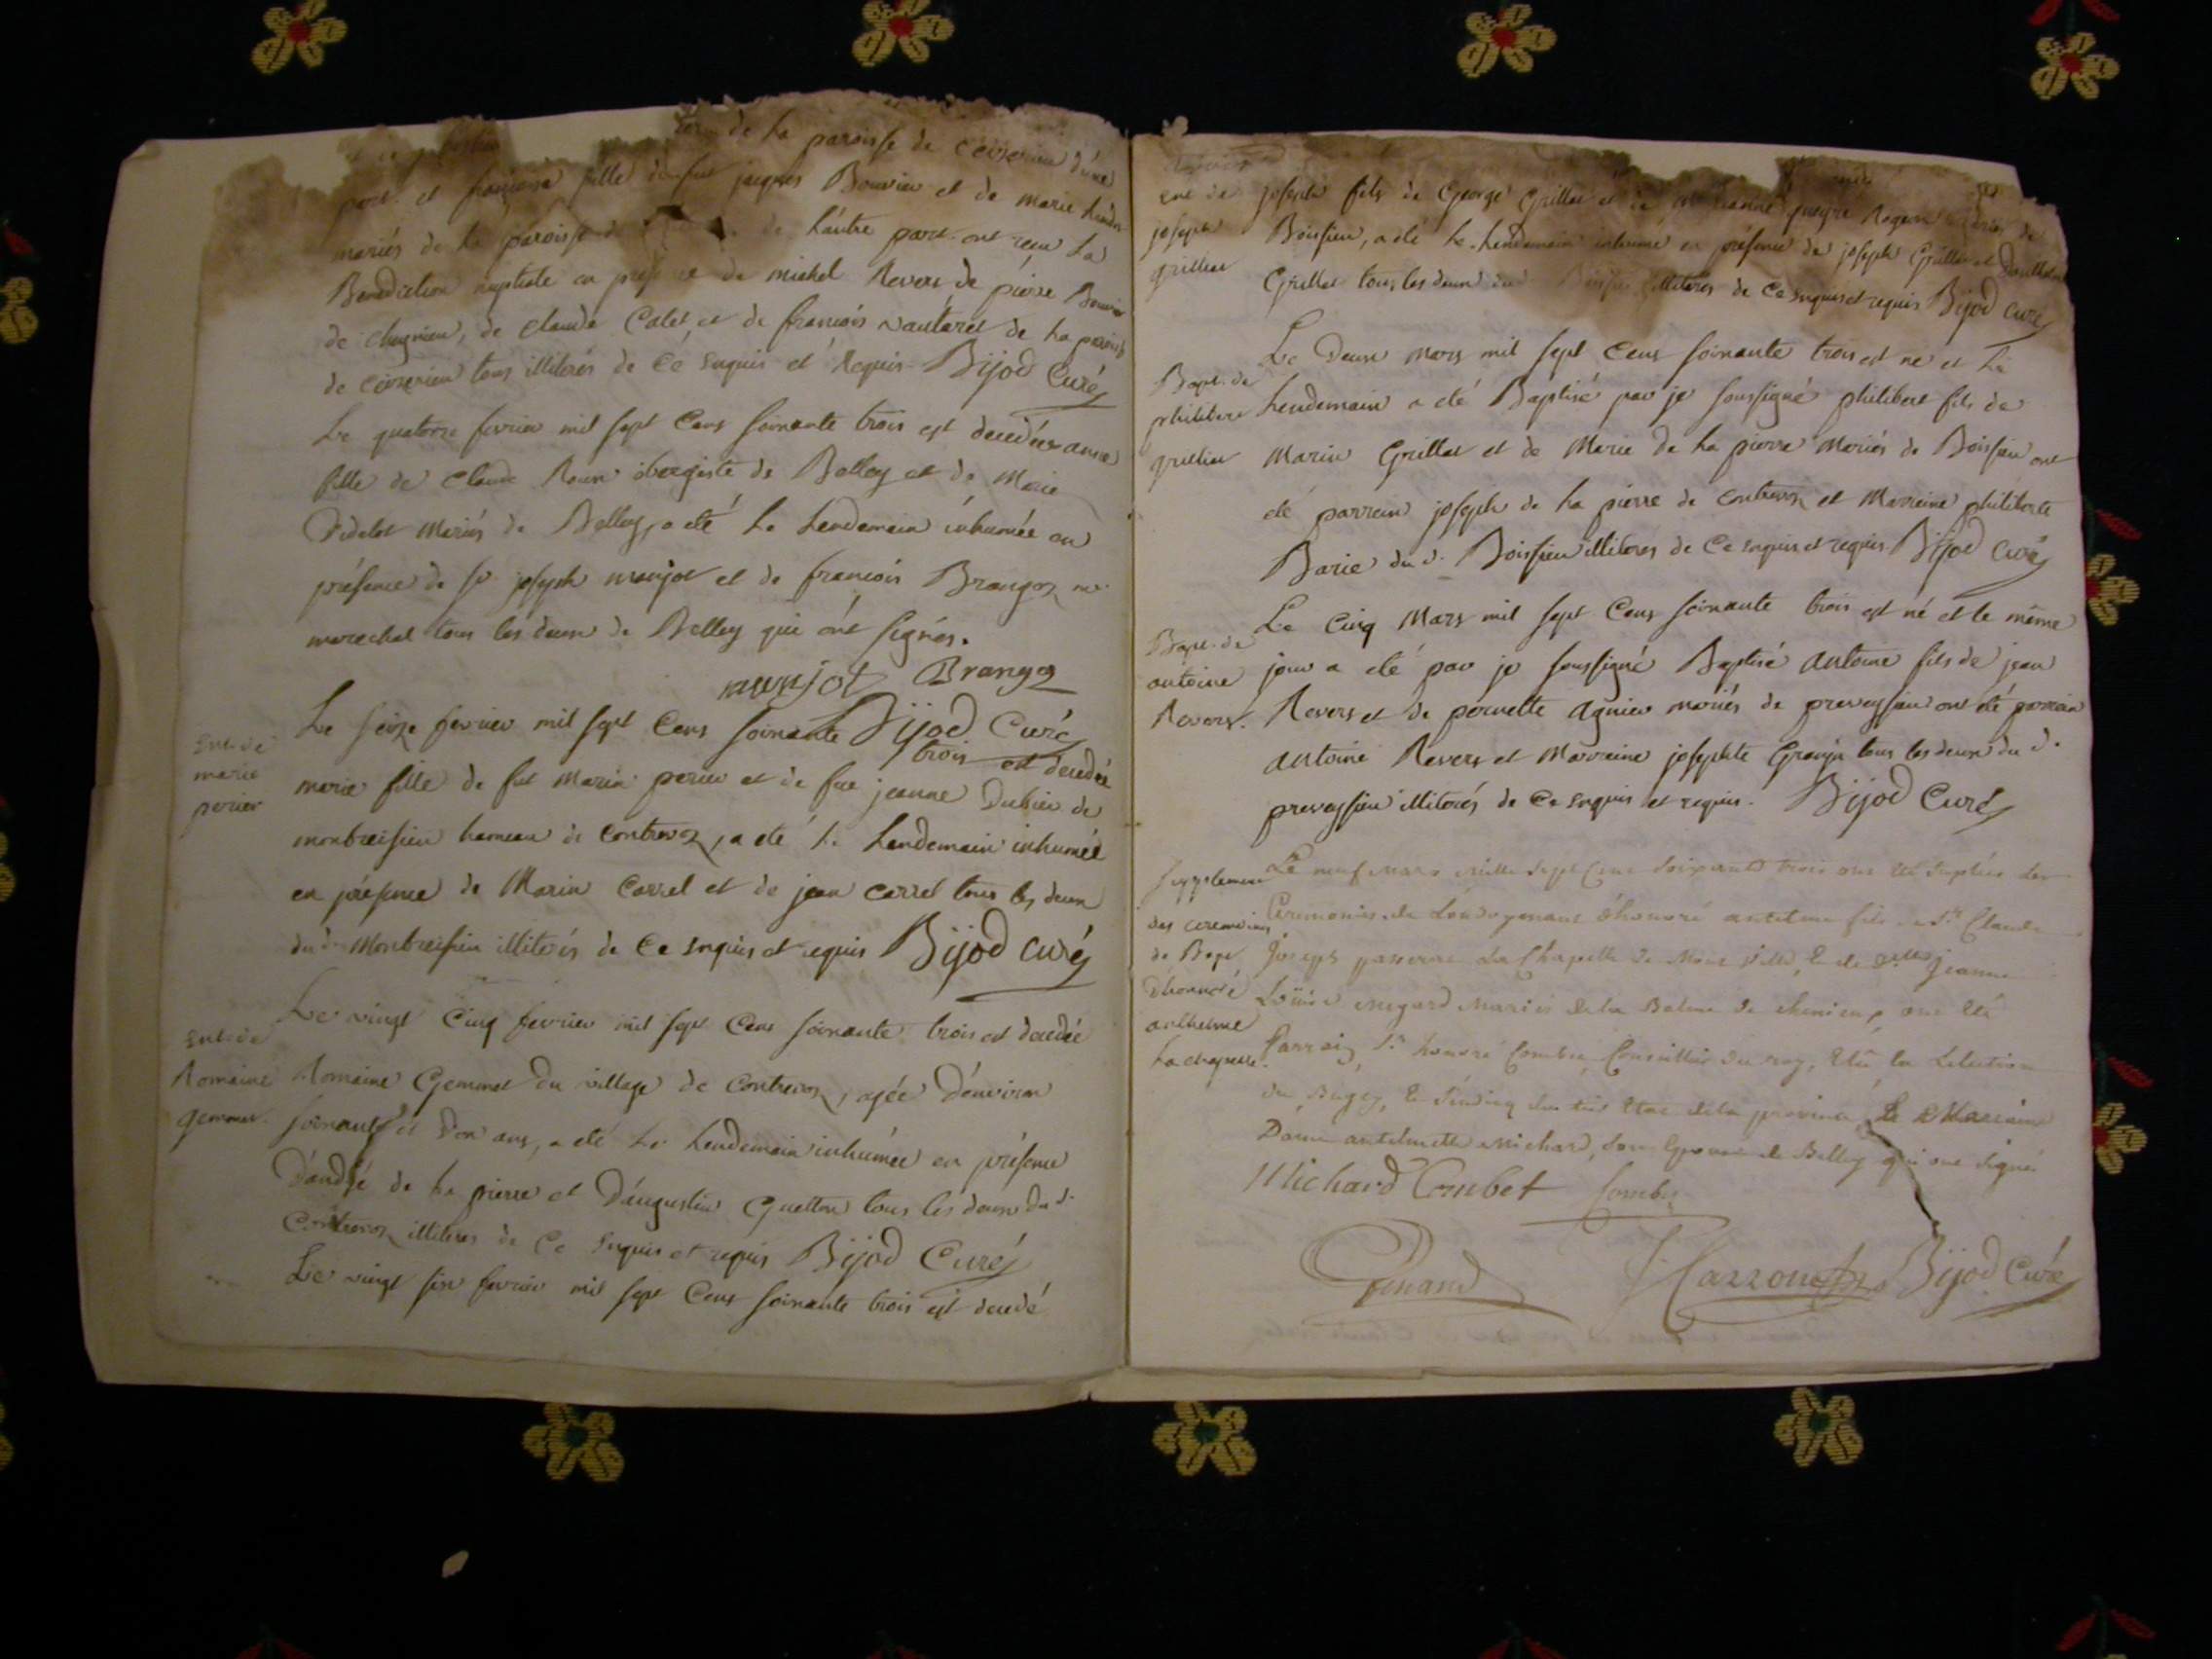 de la paroisse de Ceizerieu d'une
part. et françoise fille de fut jacques Bouvier et de marie
mariés de la paroisse de l'autre part. ont reçu La
Benediction nuptiale en presence de michel Revers de pierre Bouvier
de Chugnieu, de Claude Colet, et de francois vautaret de La paroisse
de Ceizerieu tous illiterés de Ce Enquis et Requis Bijod Curé
Le quatorze fevrier mil sept Cens soixante trois est decedée anne
fille de Claude Roux obergiste de Belley et de Marie
Videlet Mariés de Belley, a eté Le Lendemain inhumée en
présence de Sr joseph monjot et de francois Brangoz me
marechal tous les deux de Belley qui ont signés.
monjot Brangoz
Le seize fevrier mil sept Cens soixante Bijod Curé
trois est decedée
Ent. de
marie
perier
marie fille de fut Marin perier et de fue jeanne Dubieu de
montbreisieu hameau de Contrevoz, a eté Le Lendemain inhumée
en présence de Marin Carrel et de jean carrel tous les deux
dud. Montbreisieu illiterés de Ce Enquis et requis Bijod Curé
Le vingt Cinq fevrier mil sept Cens soixante trois est decedée
Ent. de
Romaine
gemmet.
Romaine Gemmet du village de Contrevoz, agée d'environ
soixante et d'ix ans, a eté Le Lendemain inhumée en présence
D'andré de La pierre et D'augustin Guetton tous les deux du d.
Contrevoz illiterés de Ce Enquis et requis Bijod Curé
Le vingt six fevrier mil sept Cens soixante trois est decedé
Ent de
joseph
grillet
joseph fils de George Grillet et de jeanne
Boissieu, a eté Le Lendemain inhumé en présence de joseph Grillet et
Grillet tous les deux dud Boissieu illiterés de Ce Enquis et requis Bijod Curé
Le Deux Mars mil sept Cens soixante trois est né et Le
Bapt. de
philibert
grillet
Lendemain a eté Baptisé par je soussigné philibert fils de
Marin Grillet et de Marie de La pierre Mariés de Boissieu ont
eté parrain joseph de La pierre de Contrevoz et Marraine philiberte
Barie du d. Boissieu illiterés de Ce Enquis et requis Bijod Curé
Le Cinq Mars mil sept Cens soixante trois est né et le même
Bapt. de
antoine
Revers.
jour a eté par je soussigné Baptisé antoine fils de jean
Revers et de pernette agnieu mariés de preveyssieu ont eté parrain
antoine Revers et Marraine josephte Granju tous les deux du d.
preveyssieu illiterés de Ce Enquis et requis. Bijod Curé
Supplement
des ceremonies
de Bapt
d'honnoré
anthelme
La chapelle.
Le neuf Mars mille sept Cent soixante trois ont eté suplées Les
Ceremonies de honoré antelme fils de Sr Claude
Joseph passerat La Chapelle de et de Delle Jeanne
Loüise Megard Mariés de la Balme de ont eté
Parrain, Sr honoré Combet, Conseiller du roy, Elû en Lelection
du Bugey, & Sindicq du tiers Etat de la province, & Marraine
Dame antelmette Michard, son Epouse de Belley qui ont signé
Michard Combet Combet
Bijod Curé